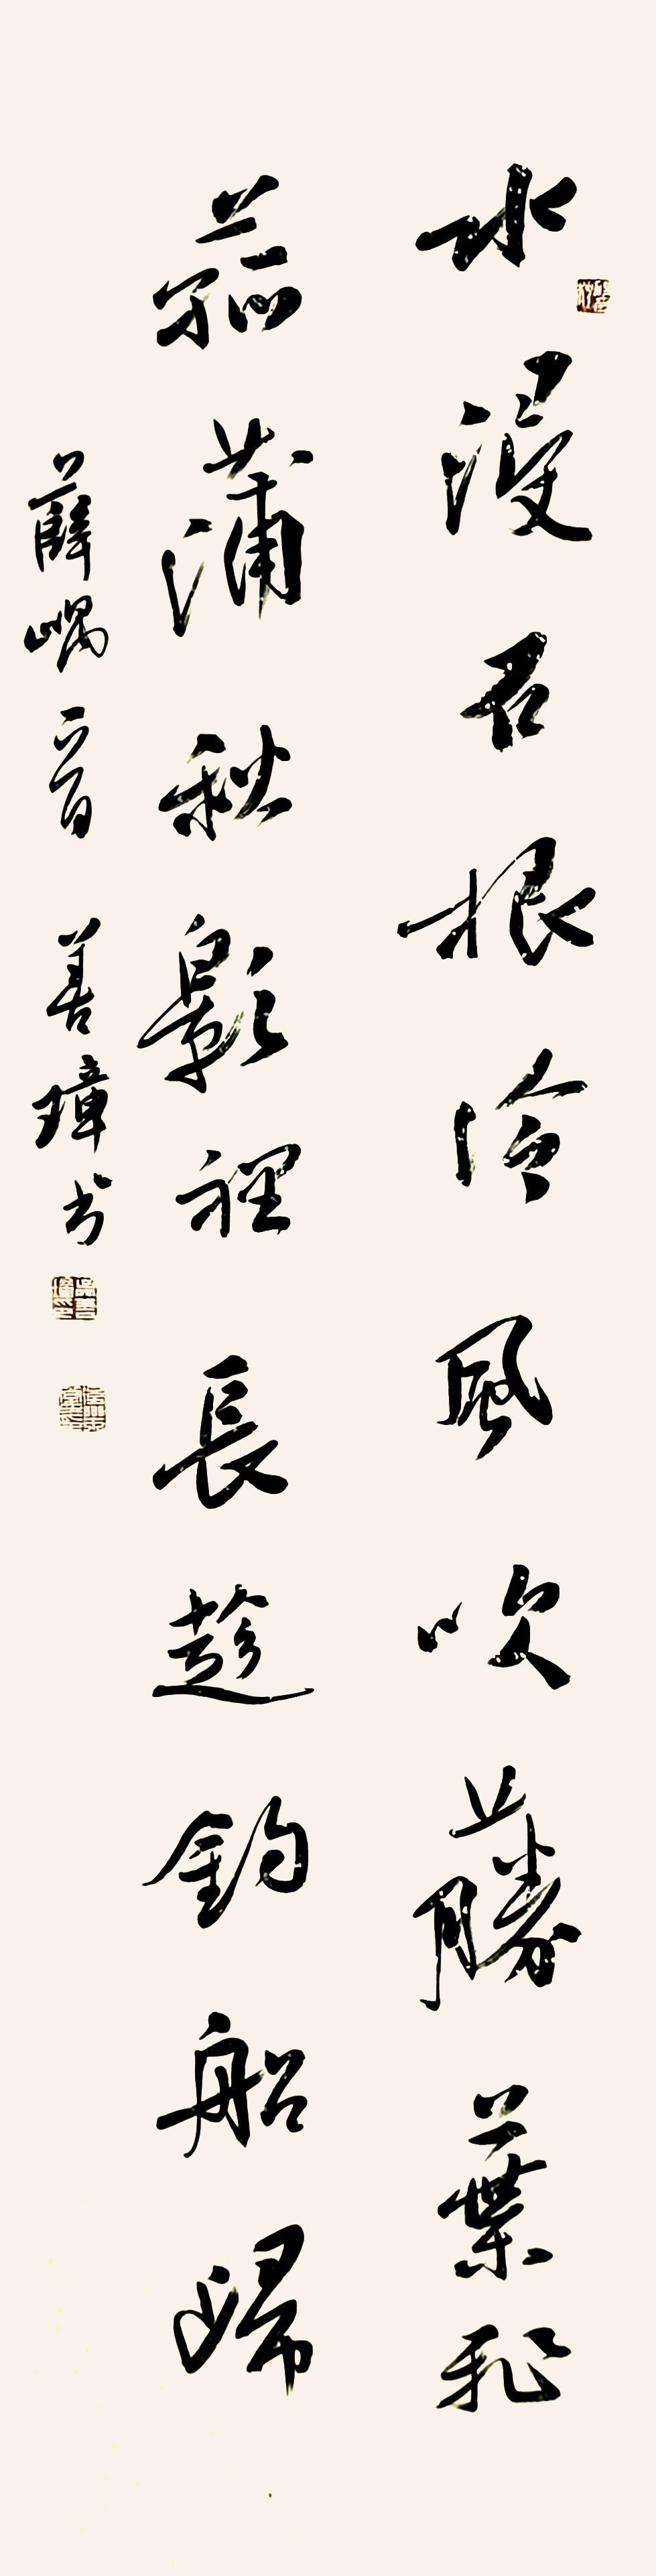 水浸石根冷風吹藤葉飛
菰蒲秋影裡長趁釣船歸
薛嵎一首 善璋书